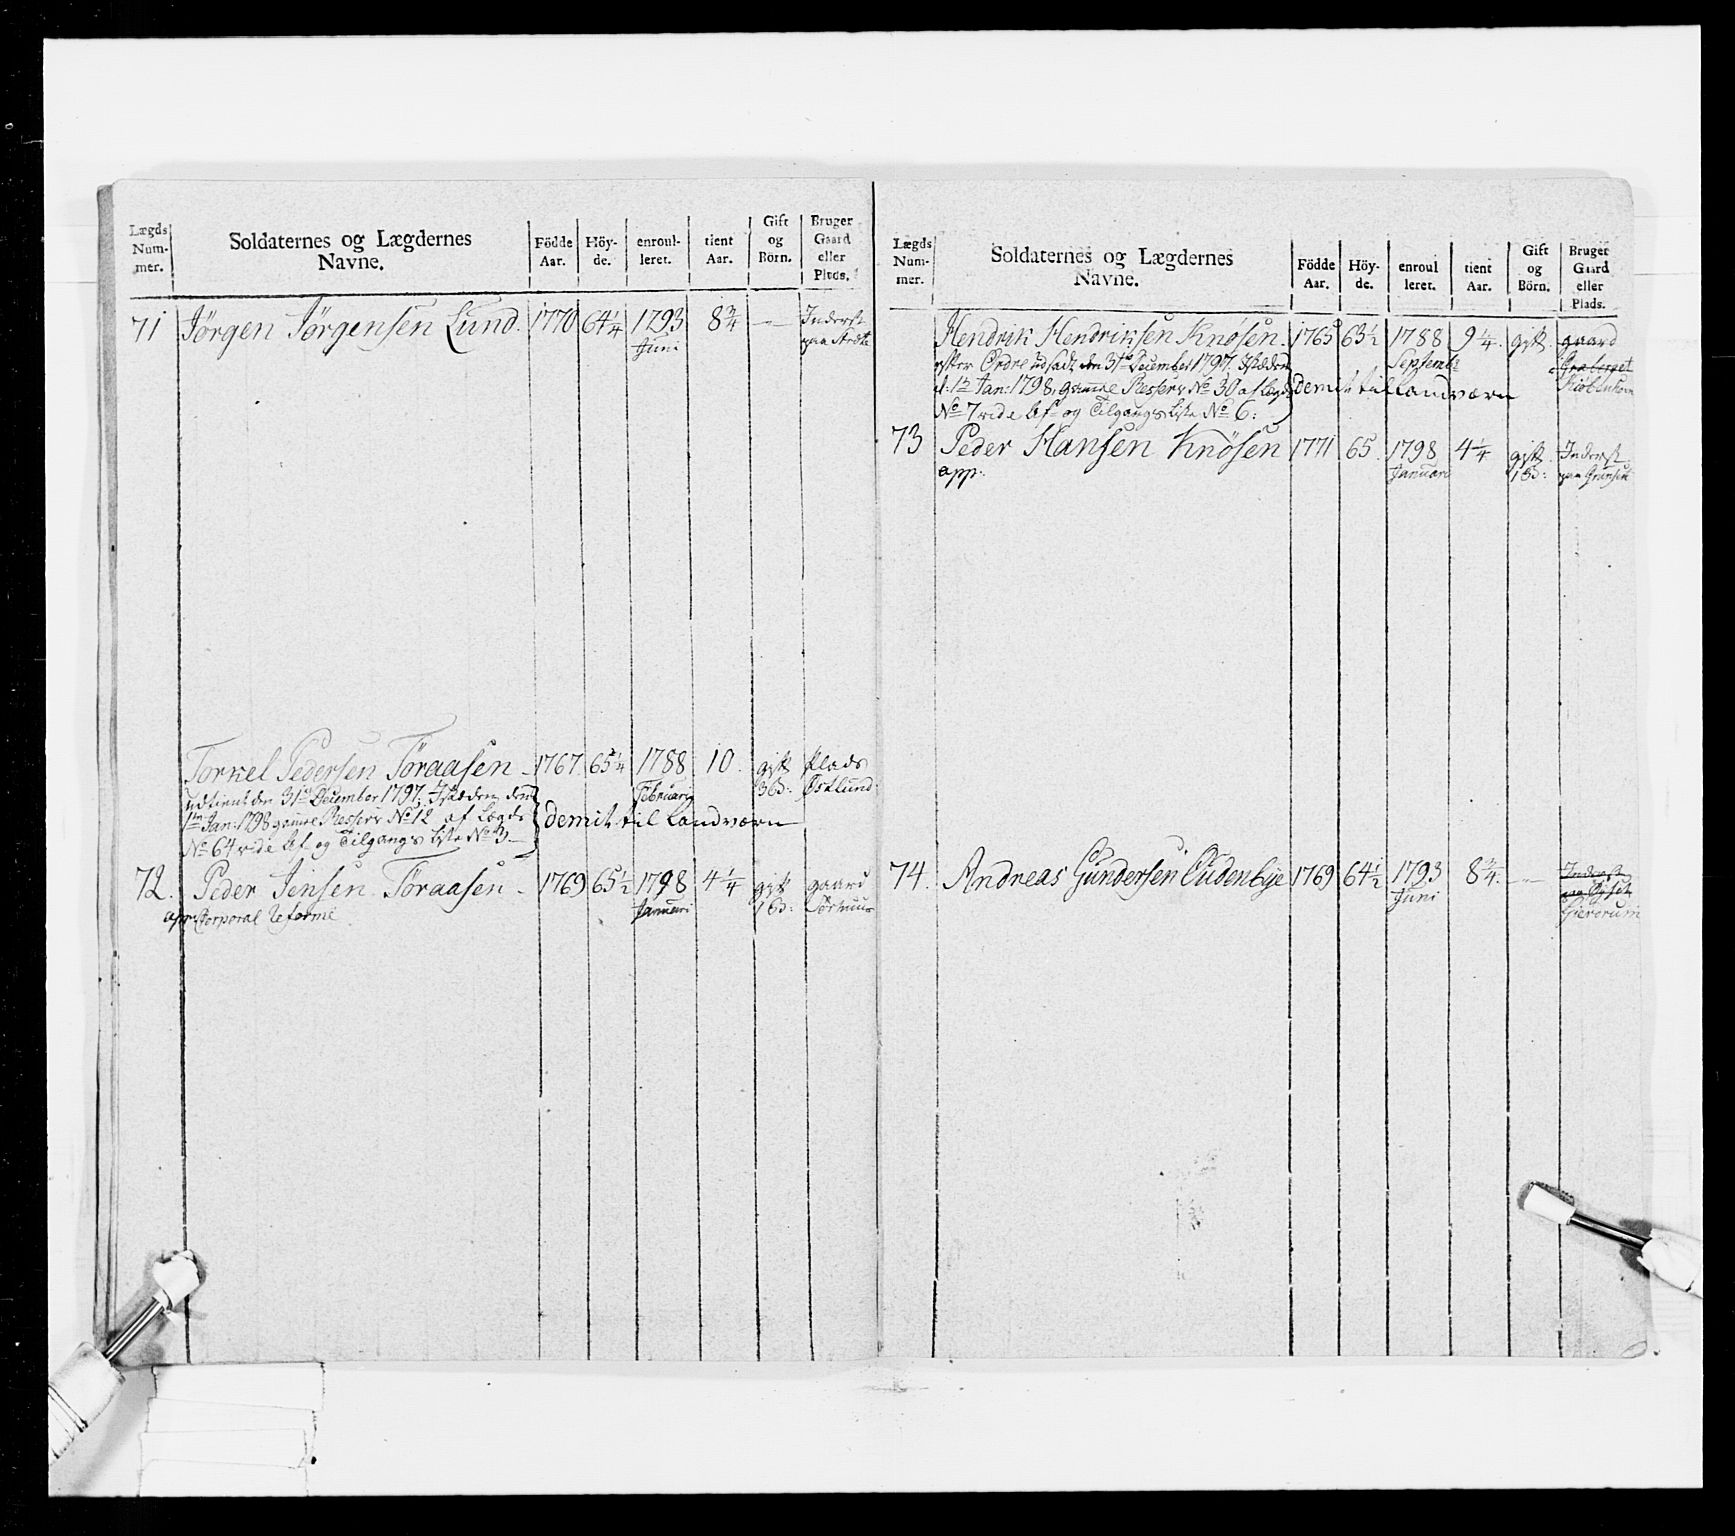 Lægds Num- mer.
Soldaternes og Lægdernes Navne.
Födde Aar.
Höy- de.
enroul- leret.
tient Aar.
Gift og Börn.
Bruger Gaard eller Plads.
71 Jörgen Jörgensen Lund. 1770 64 1/4 1793 8 3/4 — Inderst
Juni paa
Torkel Pedersen Töraasen - 1767. 65 1/4 1788 10. gift Plads
udtient den 31te December 1797, Istæden den Februari 3 B: Östlund
1te Jan: 1798 gamle Reserv No 12 af Lægds demit til Landværn
No 64 vide og Tilgangs Liste No 3-
72. Peder Jensen Töraasen - 1769 65 1/2 1798 4 1/4 gift gaard
app: Corporal Reformé Januari 1 B:
Lægds Num- mer.
Soldaternes og Lægdernes Navne.
Födde Aar.
Höy- de.
enroul leret.
tient Aar.
Gift og Börn.
Bruger Gaard eller Plads.
Hendrik Hendriksen Knösen. 1765 63 1/2 1788 9 1/4. gift gaard
efter Ordre udsadt den 31te December 1797. Istæden Septemb
d: 1te Jan: 1798, gamle Reserv No 30 af Lægds demit til Landværn
No 7 vide og Tilgangs Liste No 6:
73 Peder Hansen Knösen 1771 65. 1798 4 1/4 gift Inderst
app: Januari 1 B: paa
74. Andreas Gundersen Oudenbye 1769 64 1/2 1793 8 3/4. — Inderst
Juni paa